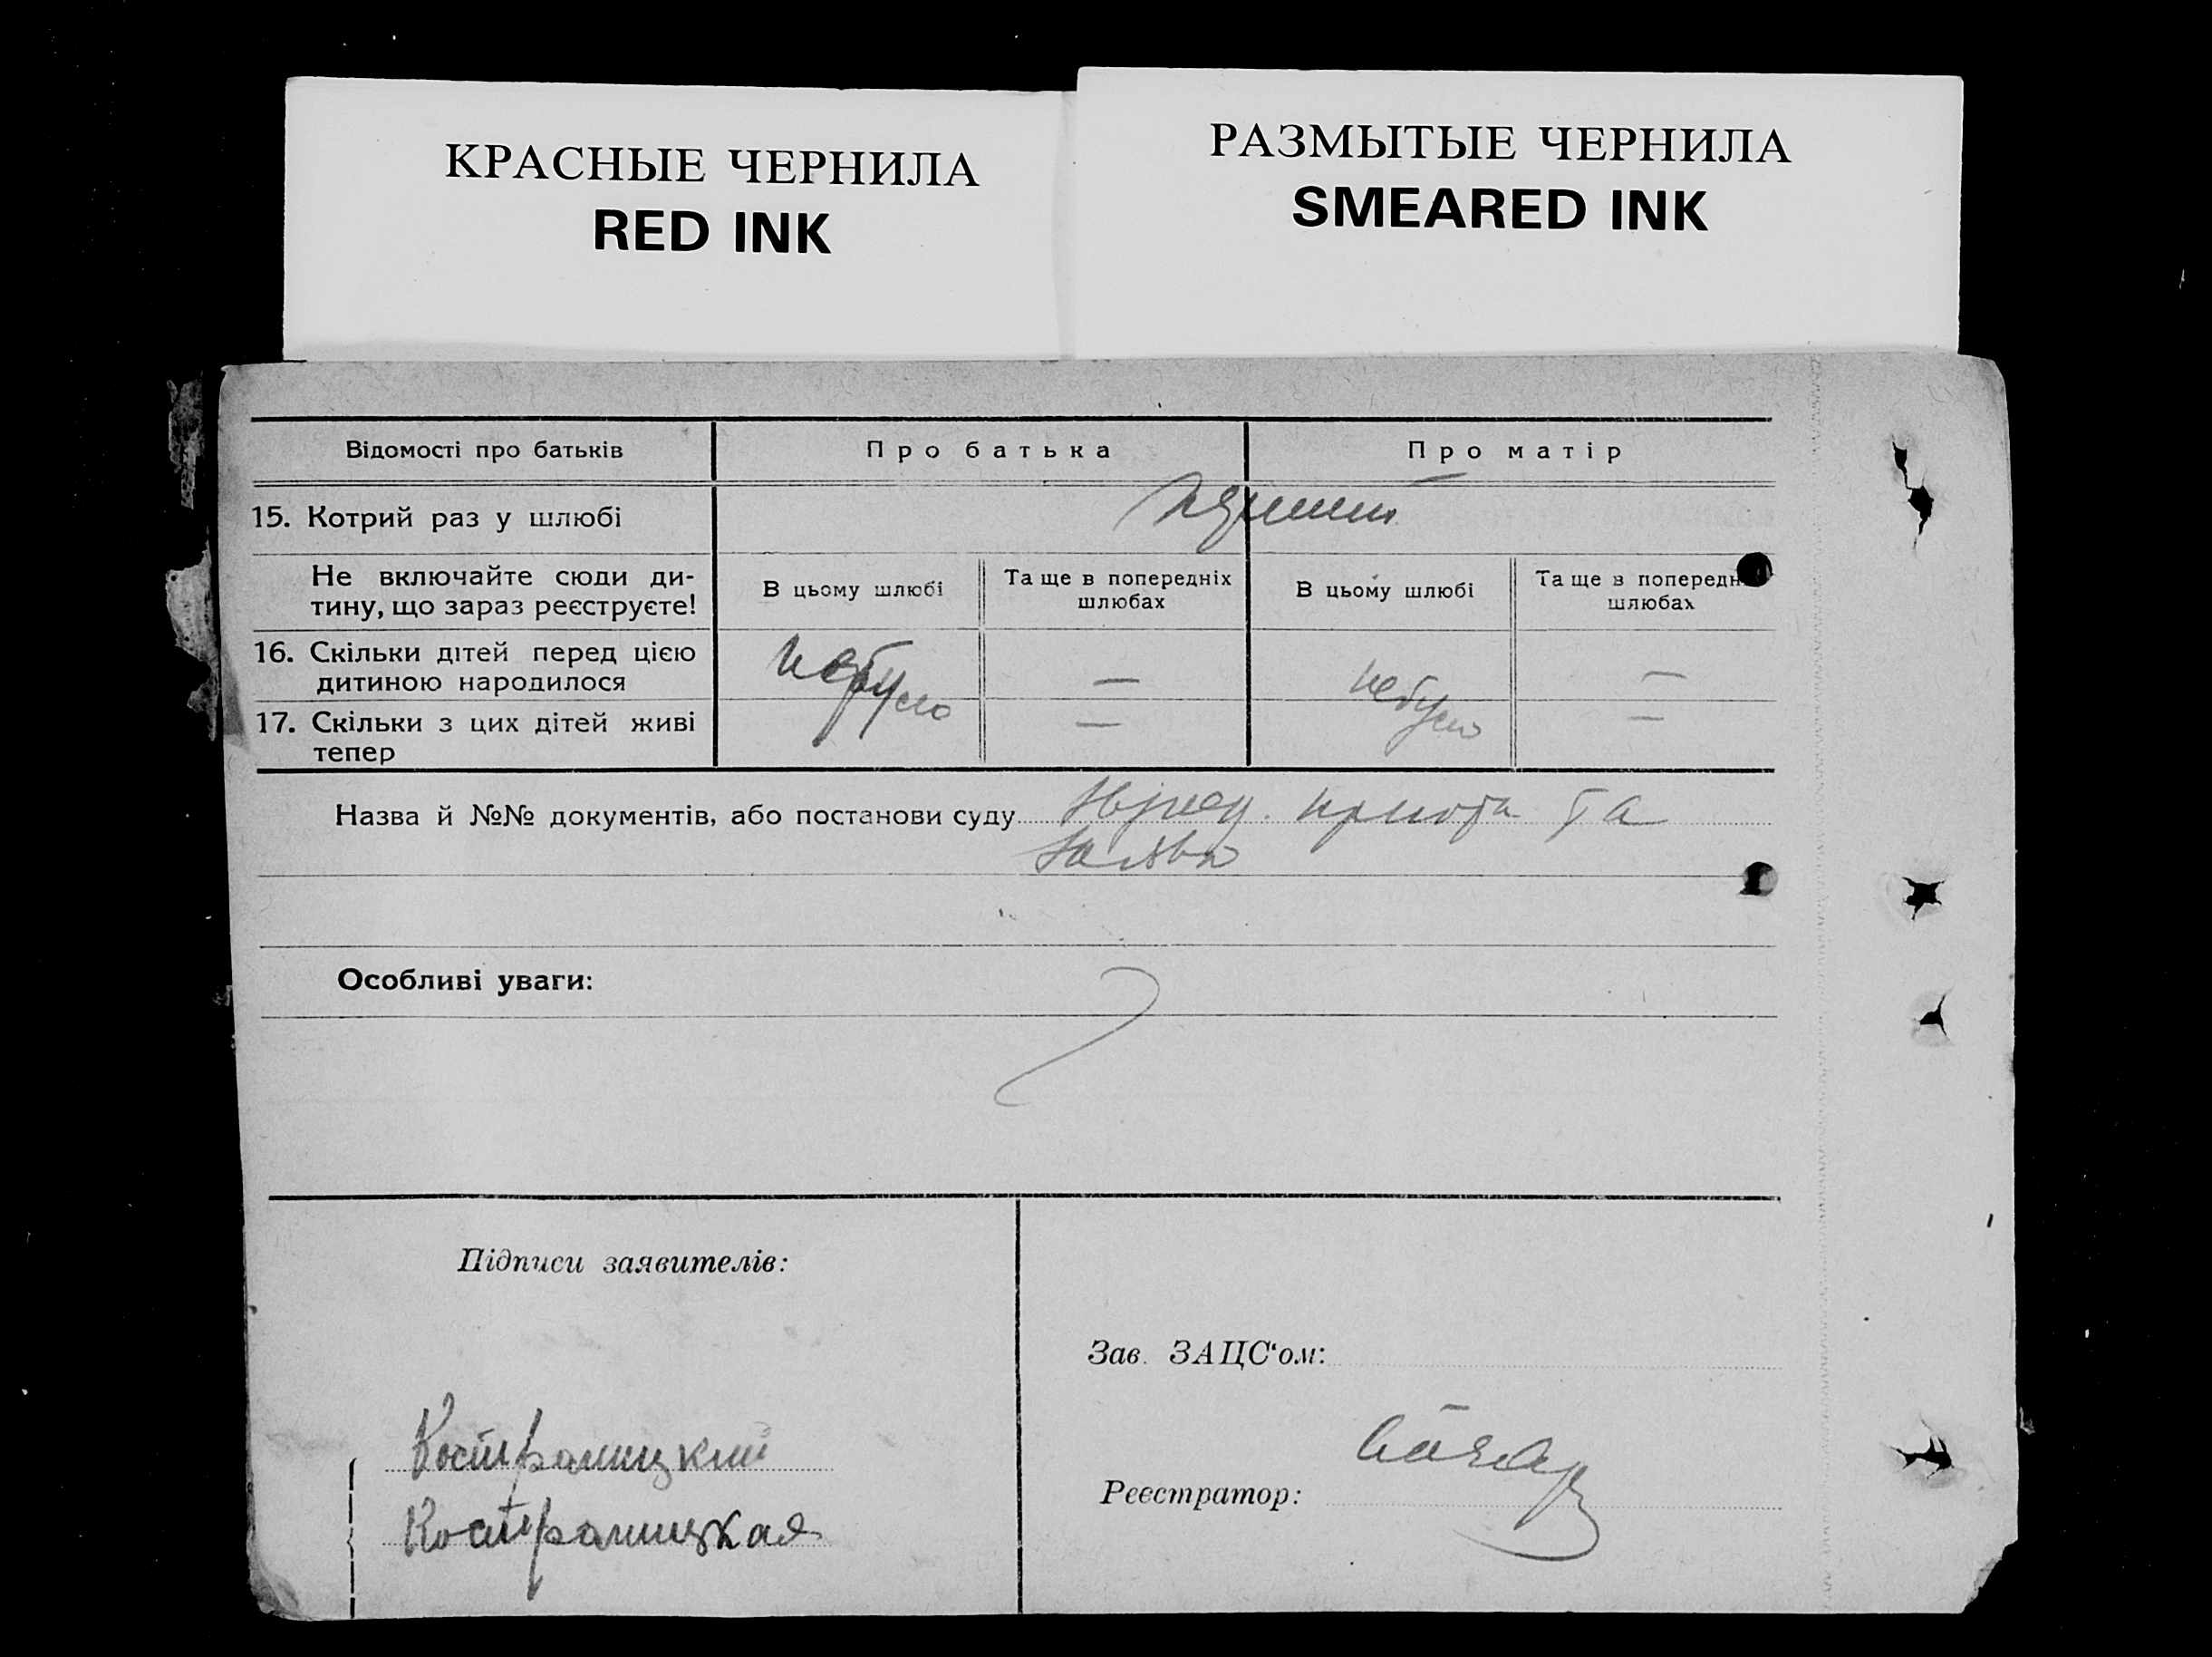 КРАСНЫЕ ЧЕРНИЛА
RED INK
РАЗМЫТЫЕ ЧЕРНИЛА
SMEARED INK
Відомості про батьків
Про батька
Про матір
15. Котрий раз у шлюбі
Не включайте сюди ди-
тину, що зараз реєструєте!
В цьому шлюбі
Та ще в попередніх
шлюбах
В цьому шлюбі
Та ще в попередн
шлюбах
16. Скільки дітей перед цією
дитиною народилося
небуло
—
небуло
—
17. Скільки з цих дітей живі
тепер
—
—
Назва й №№ документів, або постанови суду та
Заява
Особливі уваги:
Підписи заявителів:
Зав. ЗАЦС‘ом:
Реєстратор: